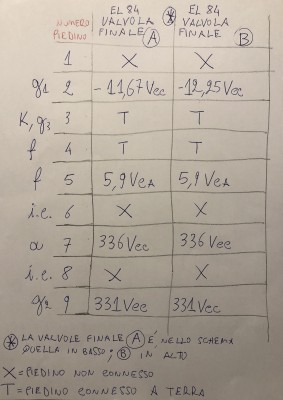 NUMERO PIEDINO EL 84 VALVOLA FINALE A * EL 84 VALVOLA FINALE B
1 X X
g1 2 -11,67Vcc -12,25Vcc
K, g3 3 T T
f 4 T T
f 5 5,9VcA 5,9VcA
i.c. 6 X X
a 7 336Vcc 336Vcc
i.c. 8 X X
g2 9 331Vcc 331Vcc
* LA VALVOLE FINALE A É NELLO SCHEMA
QUELLA IN BASSO; B IN ALTO
X = PIEDINO NON CONNESSO
T = PIEDINO CONNESSO A TERRA